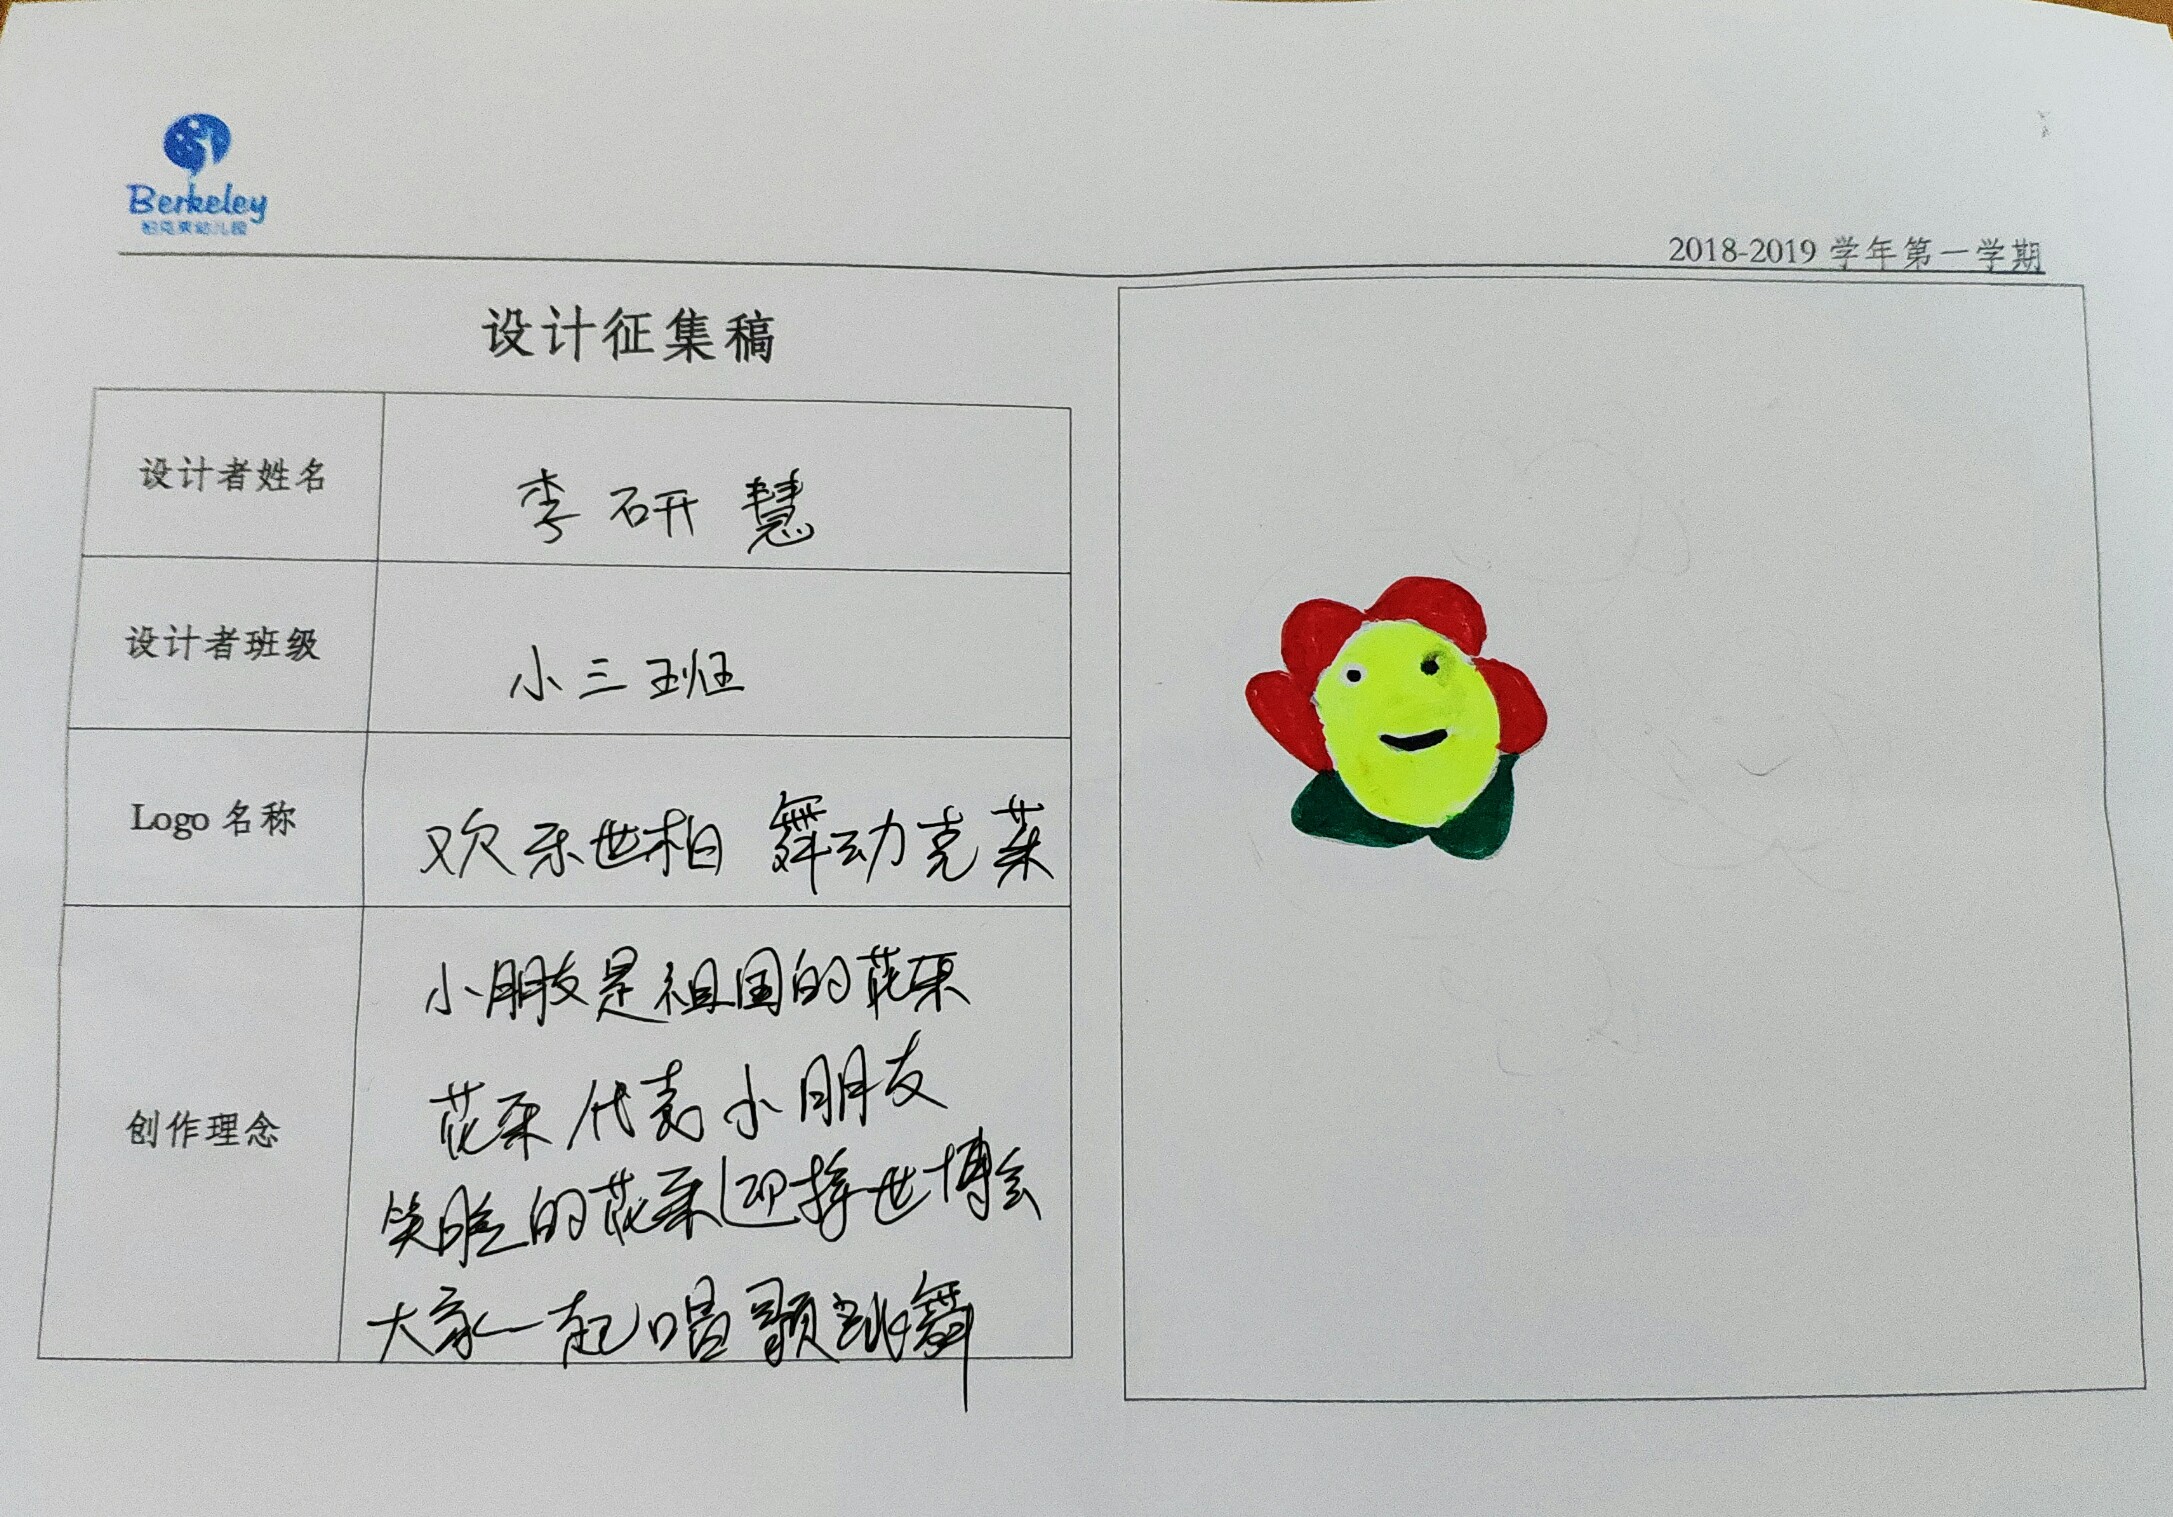 Berkeley
柏克莱幼儿园
2018-2019 学年第一学期
设计征集稿
设计者姓名
李研慧
设计者班级
小三班
Logo 名称
欢乐世柏 舞动克莱
创作理念
小朋友是祖国的花朵
花朵代表小朋友
笑脸的花朵迎接世博会
大家一起唱歌跳舞